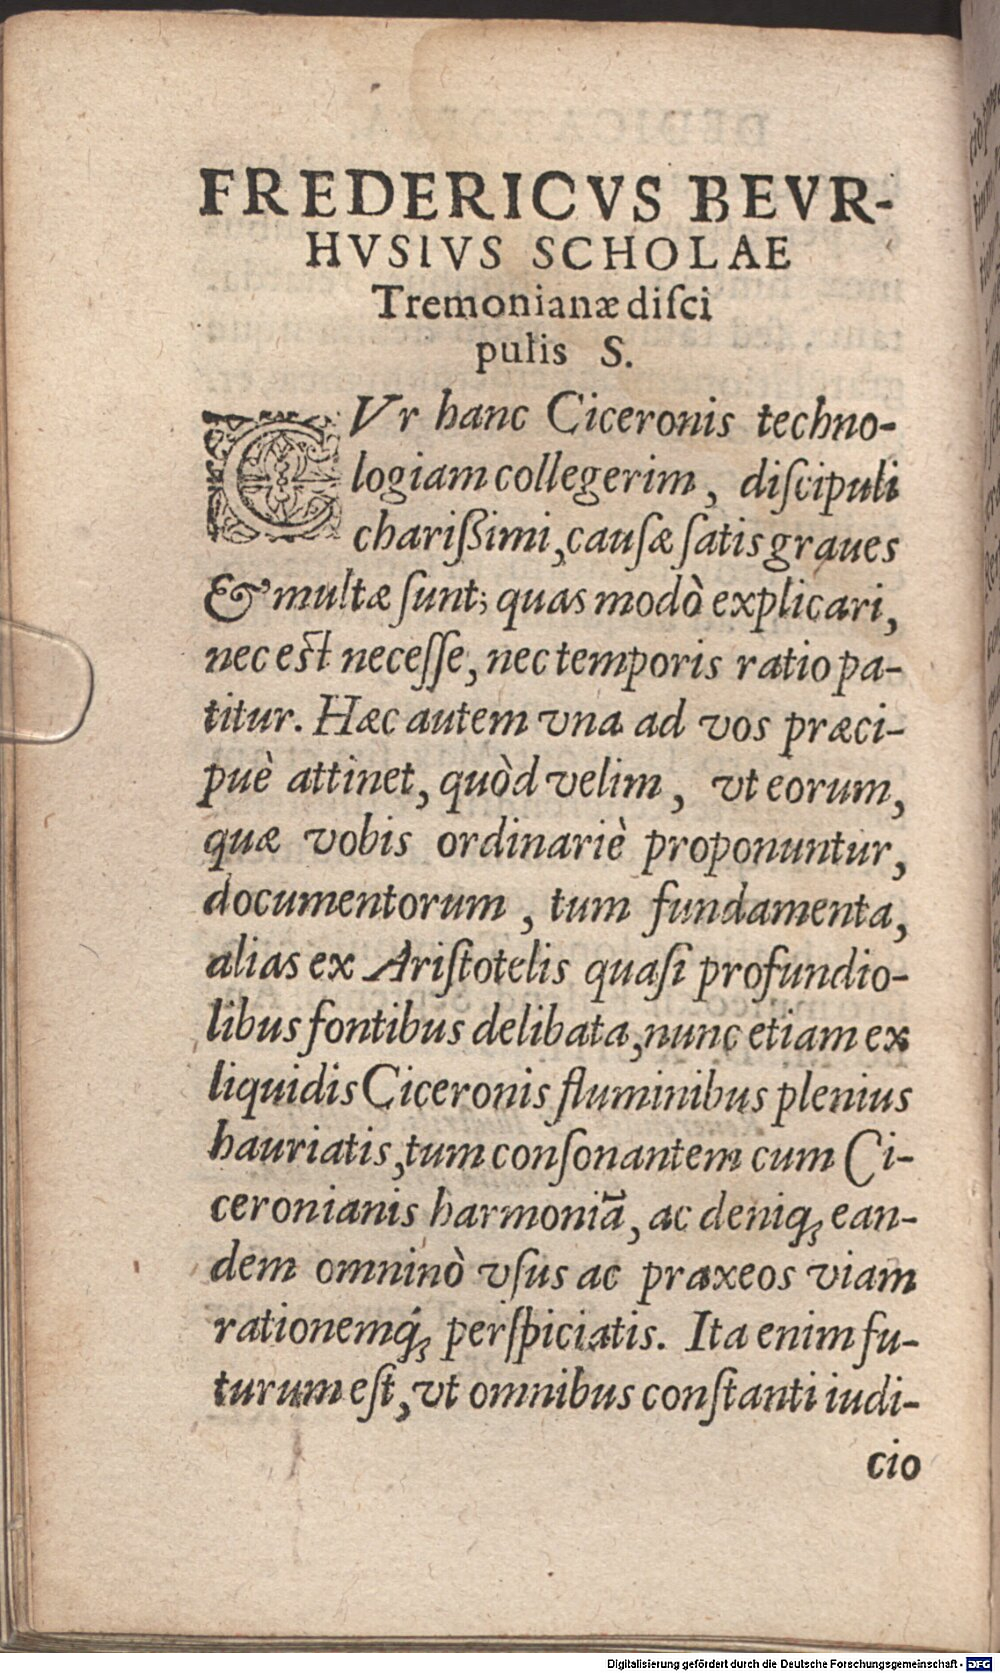 FREDERICVS BEVR-
HVSIVS SCHOLAE
Tremonianæ diſci
pulis S.
CVr hanc Ciceronis techno-
logiam collegerim, diſcipuli
charißimi, cauſæ ſatis graues
& multæ ſunt; quas modò explicari,
nec est neceſſe, nec temporis ratio pa-
titur. Hæc autem vna ad vos præci-
puè attinet, quòd velim, vt eorum,
quæ vobis ordinariè proponuntur,
documentorum, tum fundamenta,
alias ex Ariſtotelis quaſi profundio-
libus fontibus delibata, nunc etiam ex
liquidis Ciceronis fluminibus plenius
hauriatis, tum conſonantem cum Ci-
ceronianis harmoniā, ac deniq; ean-
dem omninò vſus ac praxeos viam
rationemq́; perſpiciatis. Ita enim fu-
turum eſt, vt omnibus conſtanti iudi-
cio
Digitalisierung gefördert durch die Deutsche Forschungsgemeinschaft - DFG